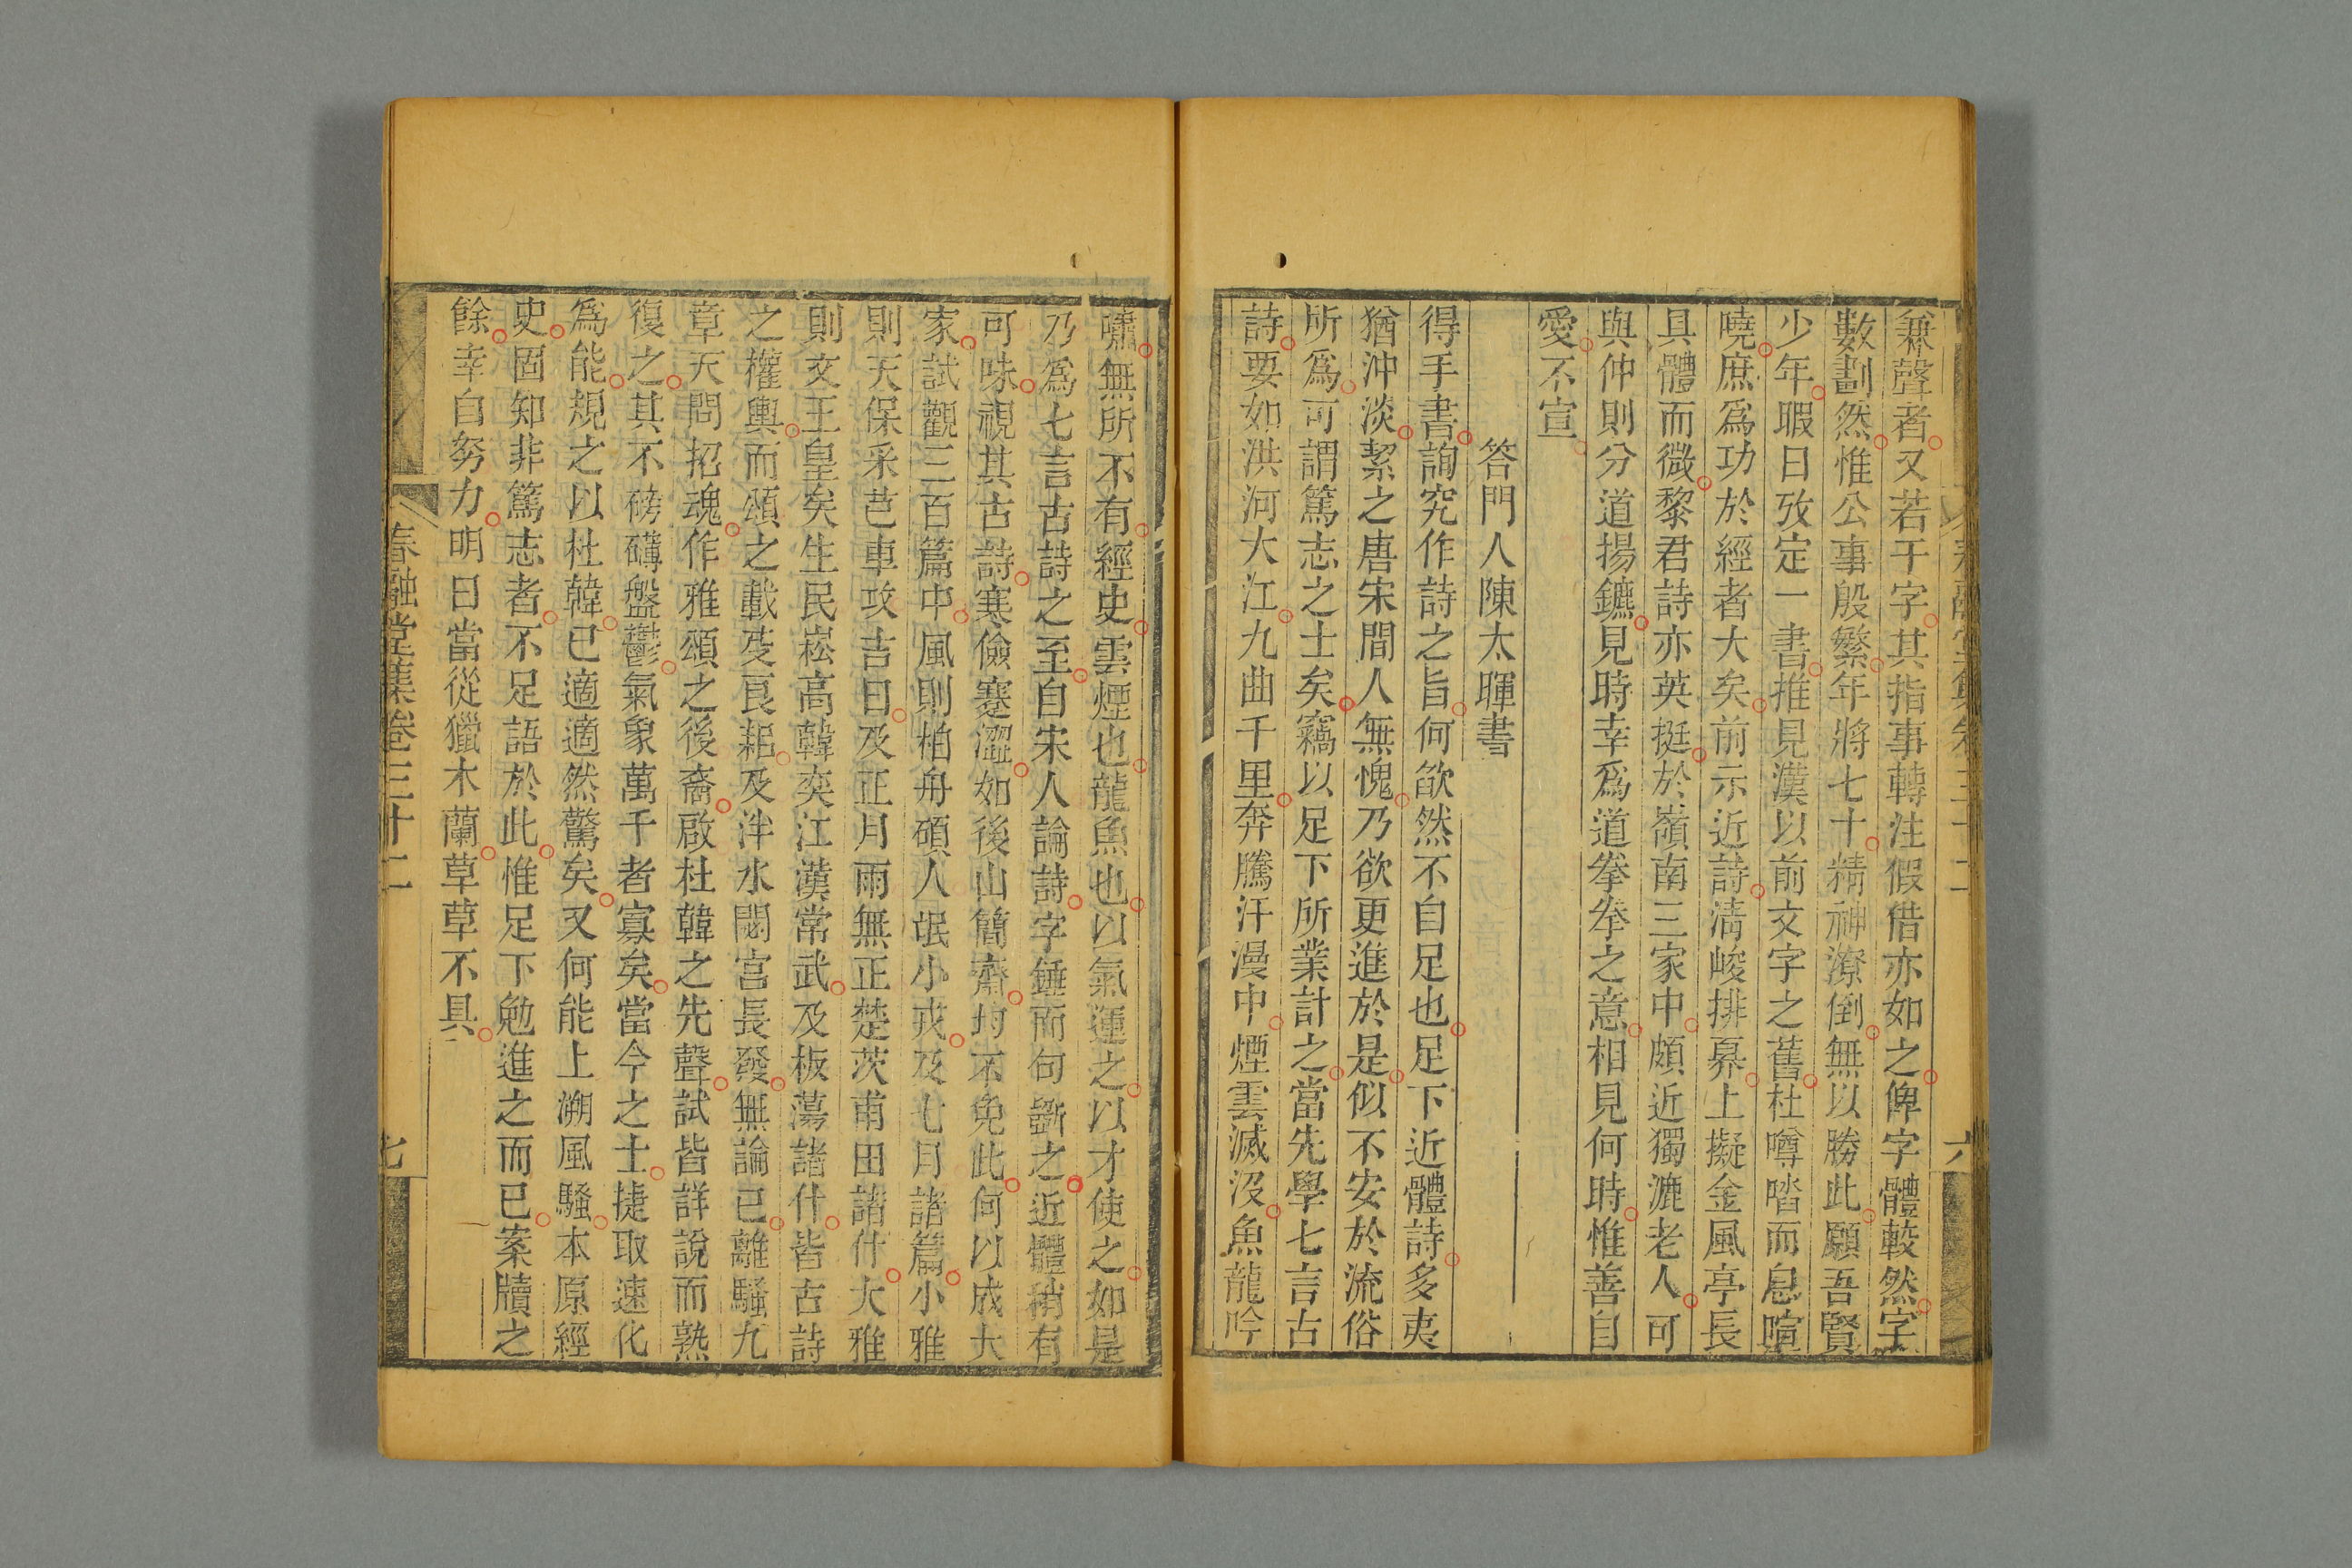 兼聲者又若干字其指事轉注假借亦如之俾字體較然字
數劃然惟公事殷繁年將七十精神潦倒無以勝此願吾賢
少年暇日攷定一書推見漢以前文字之舊杜噂喈而息喧
嘵庶爲功於經者大矣前示近詩淸峻排奡上擬金風亭長
具體而微黎君詩亦英挺於嶺南三家中頗近獨漉老人可
與仲則分道揚鑣見時幸爲道拳拳之意相見何時惟善自
愛不宣
答門人陳太暉書
得手書詢究作詩之旨何欿然不自足也足下近體詩多夷
猶沖淡絜之唐宋間人無愧乃欲更進於是似不安於流俗
所爲可謂篤志之士矣竊以足下所業計之當先學七言古
詩要如洪河大江九曲千里奔騰汗漫中煙雲滅沒魚龍吟
六
嘯無所不有經史雲煙也龍魚也以氣運之以才使之如是
乃爲七言古詩之至自宋人論詩字錘而句斲之近體稍有
可味視其古詩寒儉蹇澀如後山簡齋均不免此何以成大
家試觀三百篇中風則柏舟碩人氓小戎及七月諸篇小雅
則天保采芑車攻吉日及正月雨無正楚茨甫田諸什大雅
則文王皇矣生民崧高韓奕江漢常武及板蕩諸什皆古詩
之權輿而頌之載芟良耜及泮水閟宮長發無論已離騷九
章天問招魂作雅頌之後裔啟杜韓之先聲試皆詳說而熟
復之其不磅礴盤鬱氣象萬千者寡矣當今之士捷取速化
爲能規之以杜韓已適適然驚矣又何能上溯風騷本原經
史固知非篤志者不足語於此惟足下勉進之而已案牘之
餘幸自努力明日當從獵木蘭草草不具
春融堂集卷三十二
七